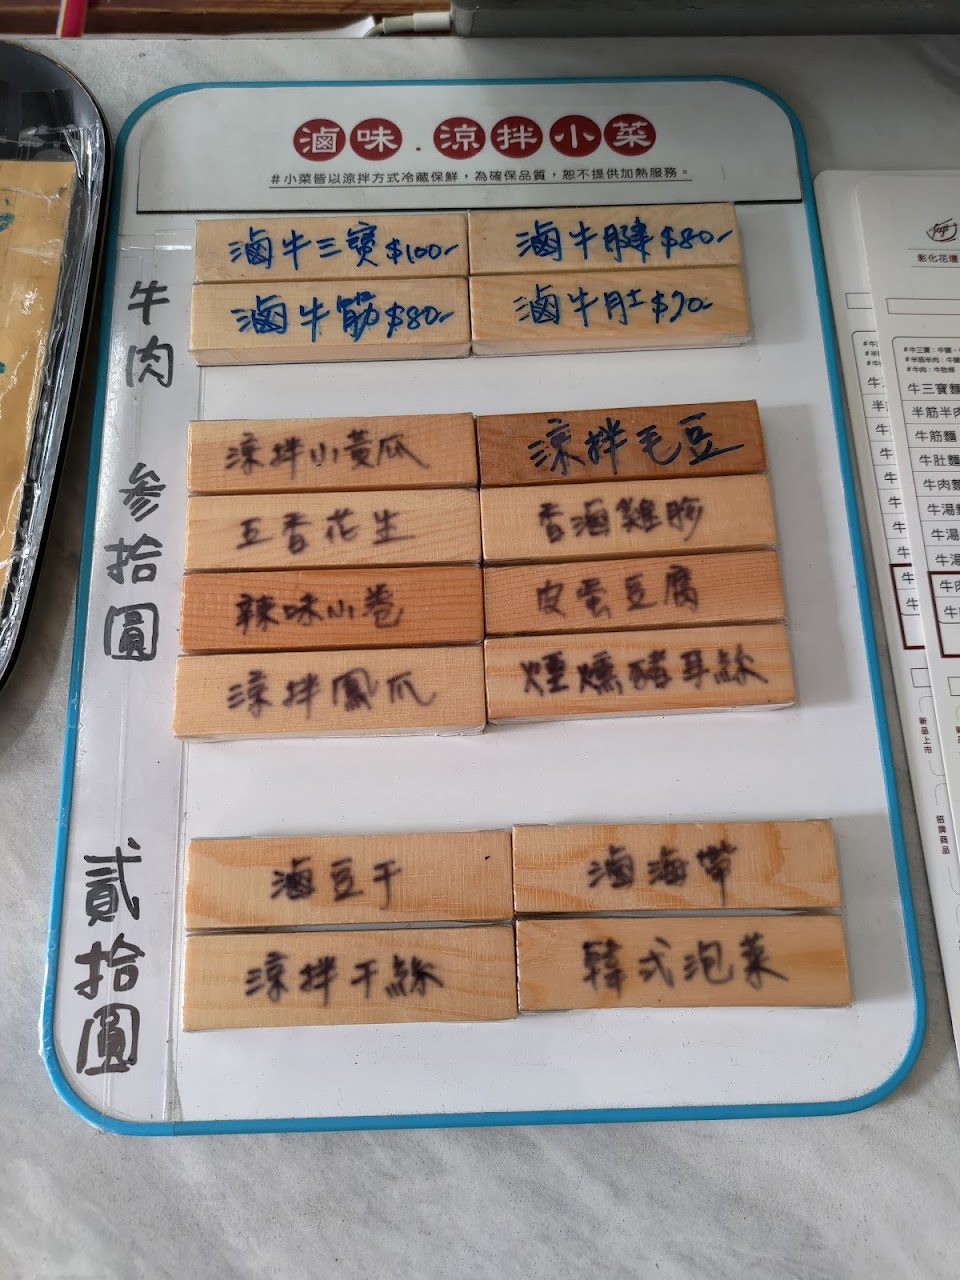 滷味.涼拌小菜
#小菜皆以涼拌方式冷藏保鮮，為確保品質，恕不提供加熱服務。
牛肉
滷牛三寶$100-
滷牛腱$80-
滷牛筋$80-
滷牛肚$70-
参拾圓
涼拌小黃瓜
涼拌毛豆
五香花生
香滷雞胗
辣味小卷
皮蛋豆腐
涼拌鳳爪
煙燻豬耳絲
貳拾圓
滷豆干
滷海帶
涼拌干絲
韓式泡菜
彰化花壇
牛三寶麵
半筋半肉
牛筋麵
牛肚麵
牛肉麵
牛湯麵
牛湯
牛湯
牛肉
新品上市
招牌商品